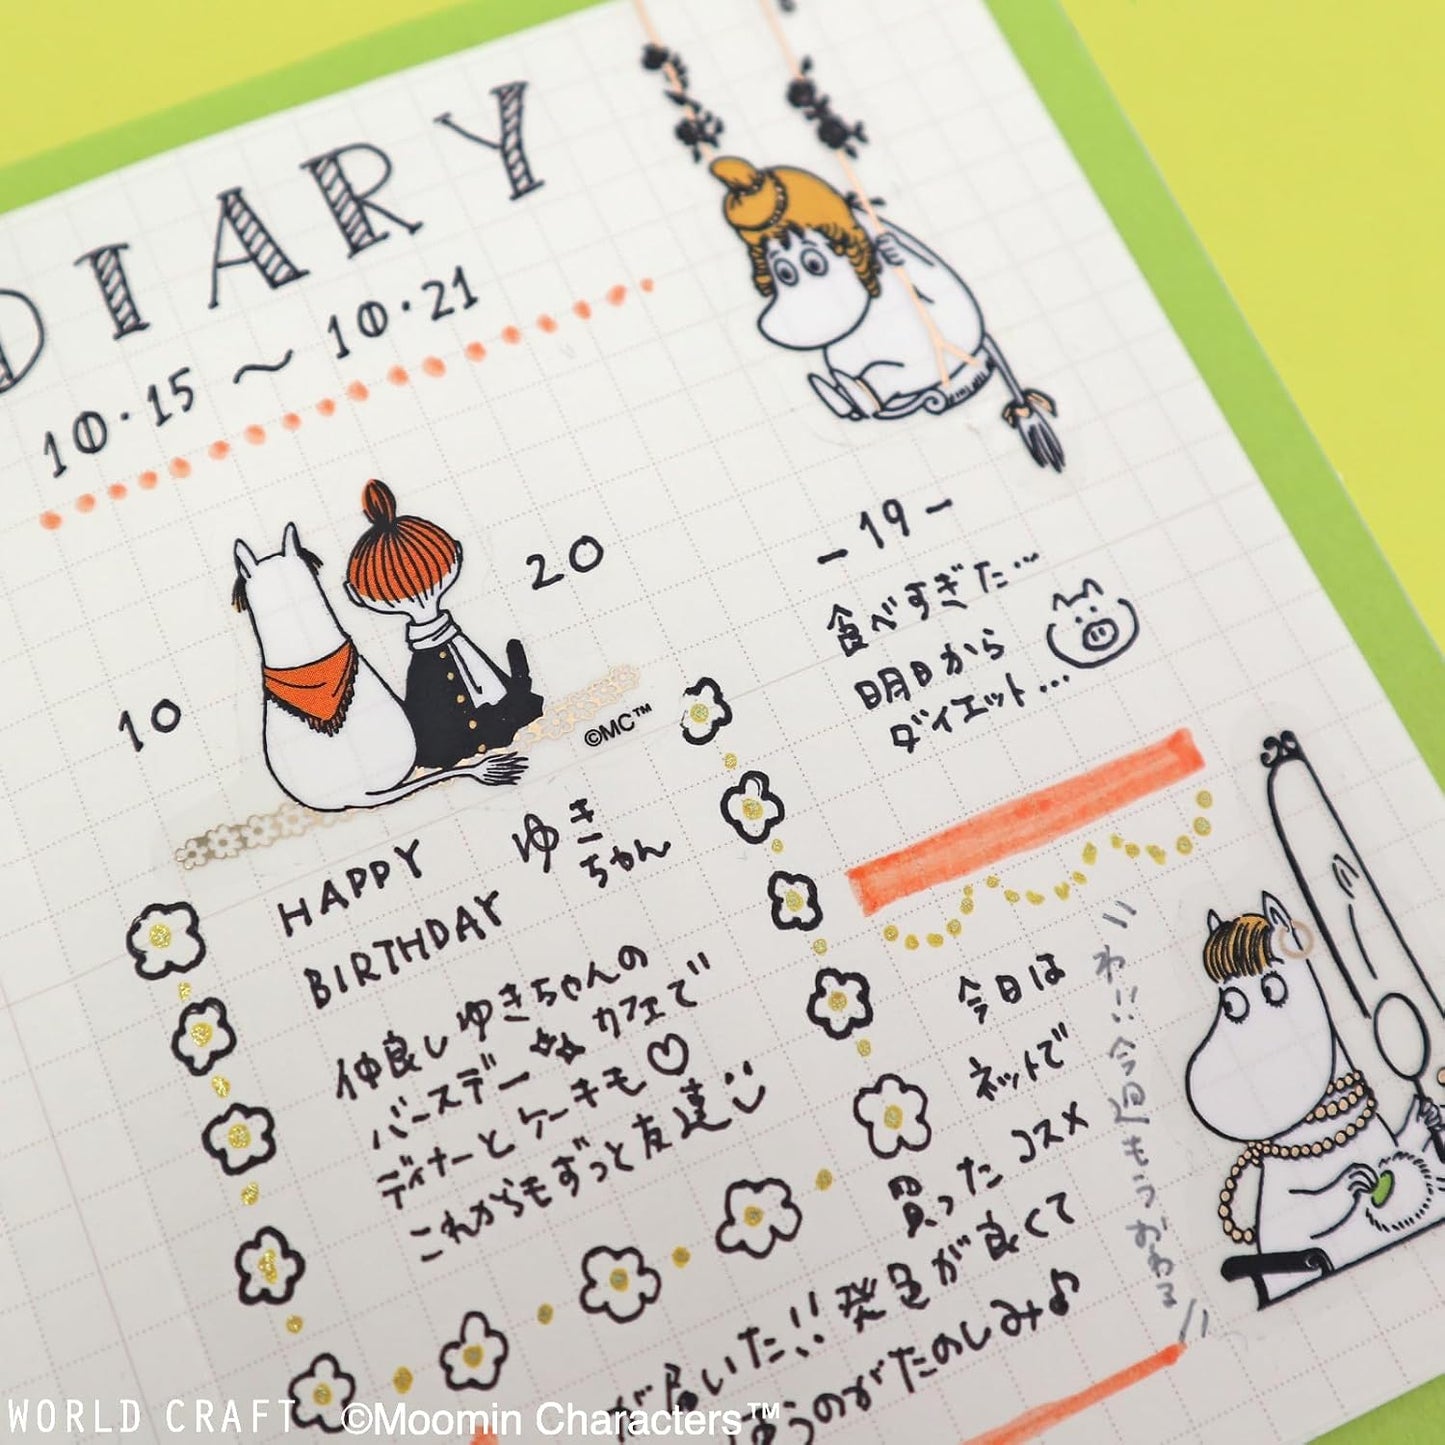 DIARY
10・15～10・21
10
20
©MC™
HAPPY
BIRTHDAY
ゆき
ちゃん
仲良しゆきちゃんの
バースデー☆☆カフェで
ディナーとケーキモ♡
これからもずっと友達
-19-
食べすぎた…
明日から
ダイエット…
今日は
ネットで
買ったコスメ
いた!!発色が良くて
うのがたのしみ♪
わ!!今週もうおわる
WORLD CRAFT ©Moomin Characters™